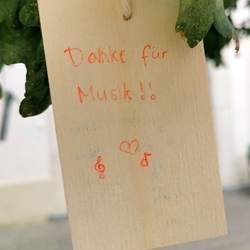 Danke für
Musik!!